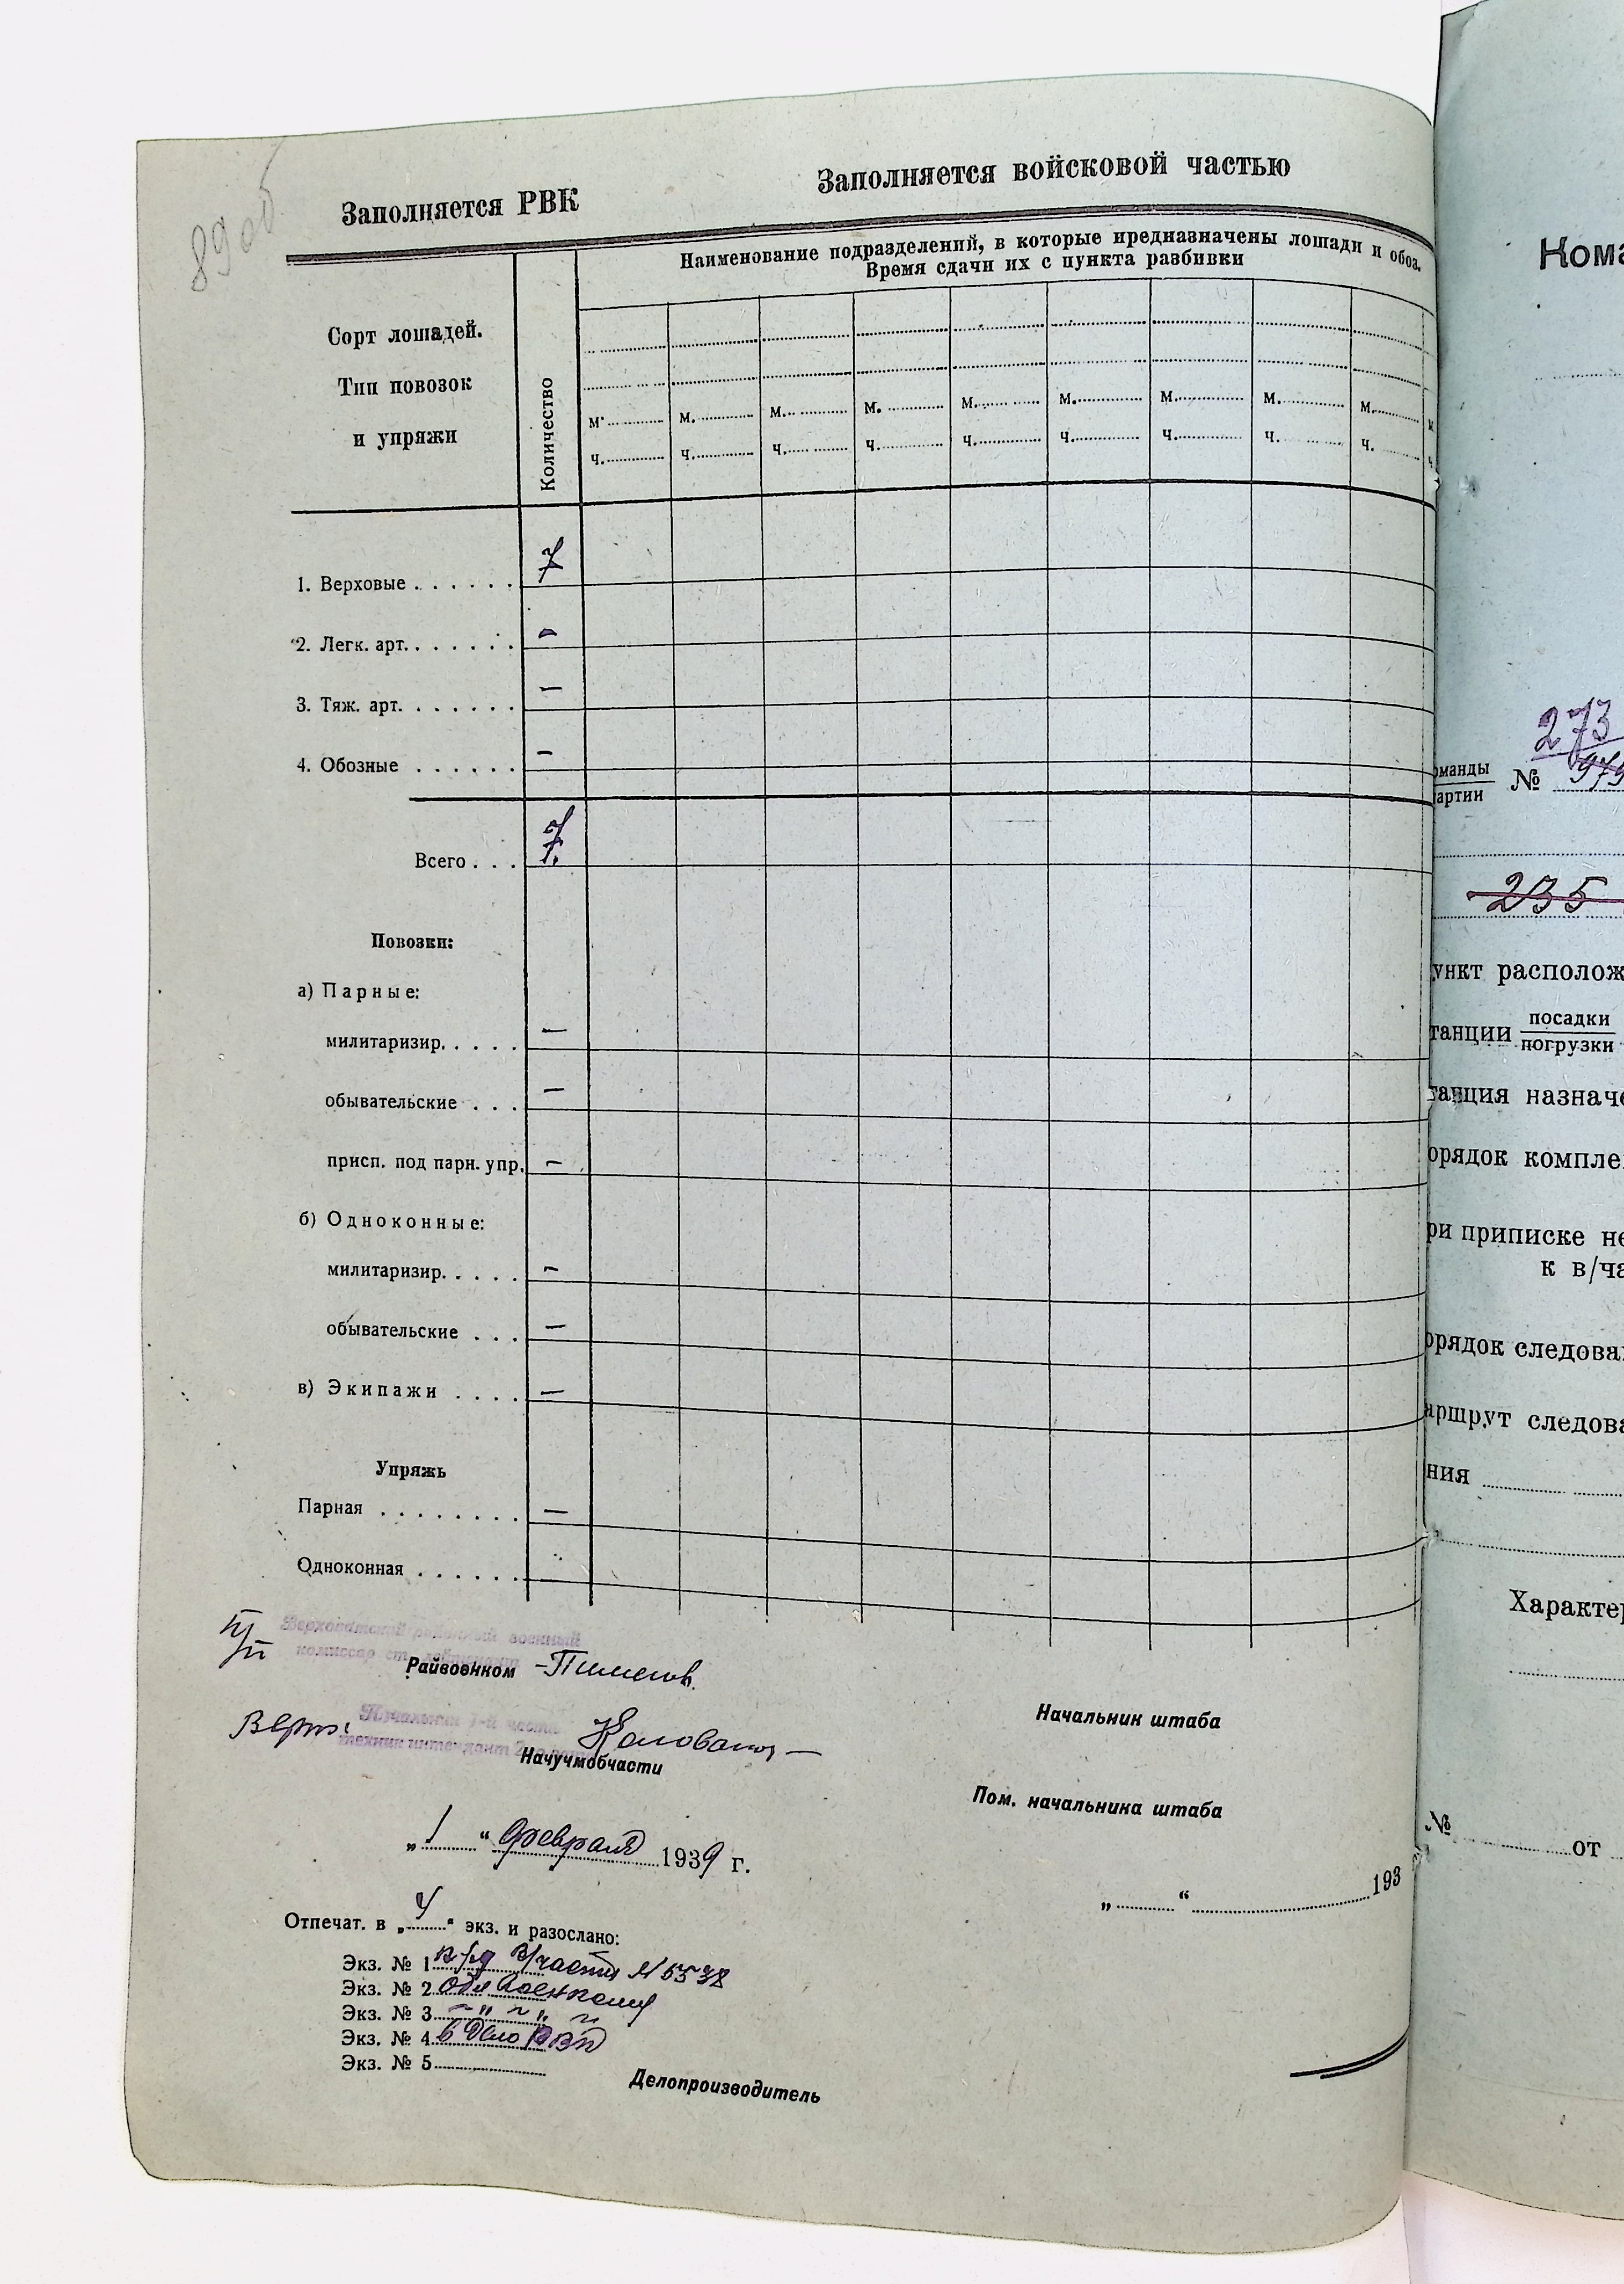 89об
Заполняется РВК
Заполняется войсковой частью
Сорт лошадей.
Тип повозок
и упряжи
Количество
Наименование подразделений, в которые предназначены лошади и обоз.
Время сдачи их с пункта разбивки
м. м. м. м. м. м. м. м. м. м.
ч. ч. ч. ч. ч. ч. ч. ч. ч. ч.
1. Верховые . . . . . . 7
2. Легк. арт. . . . . . . -
3. Тяж. арт. . . . . . . —
4. Обозные . . . . . . -
Всего . . . 7.
Повозки:
а) Парные:
милитаризир. . . . . —
обывательские . . . —
присп. под парн. упр. —
б) Одноконные:
милитаризир. . . . . -
обывательские . . . —
в) Экипажи . . . . —
Упряжь
Парная . . . . . . . . —
Одноконная . . . . . .
п/п
районный военный
комиссар
Райвоенком
Начальник 1-й части
техник интендант 2
Верно:
Начучмобчасти
„ 1 “ февраля 1939 г.
Отпечат. в „ 4 “ экз. и разослано:
Экз. № 1 В/части № 5538
Экз. № 2 Облвоенкому
Экз. № 3 ~ „ ~ „ ~
Экз. № 4 в дело
Экз. № 5
Делопроизводитель
Начальник штаба
Пом. начальника штаба
„ “ 193
Кома
273
оманды
артии
№ 979
235
ункт располож
танции посадки
погрузки
танция назначе
орядок компле
ри приписке не
к в/ча
орядок следова
аршрут следова
ния
Характер
№ от